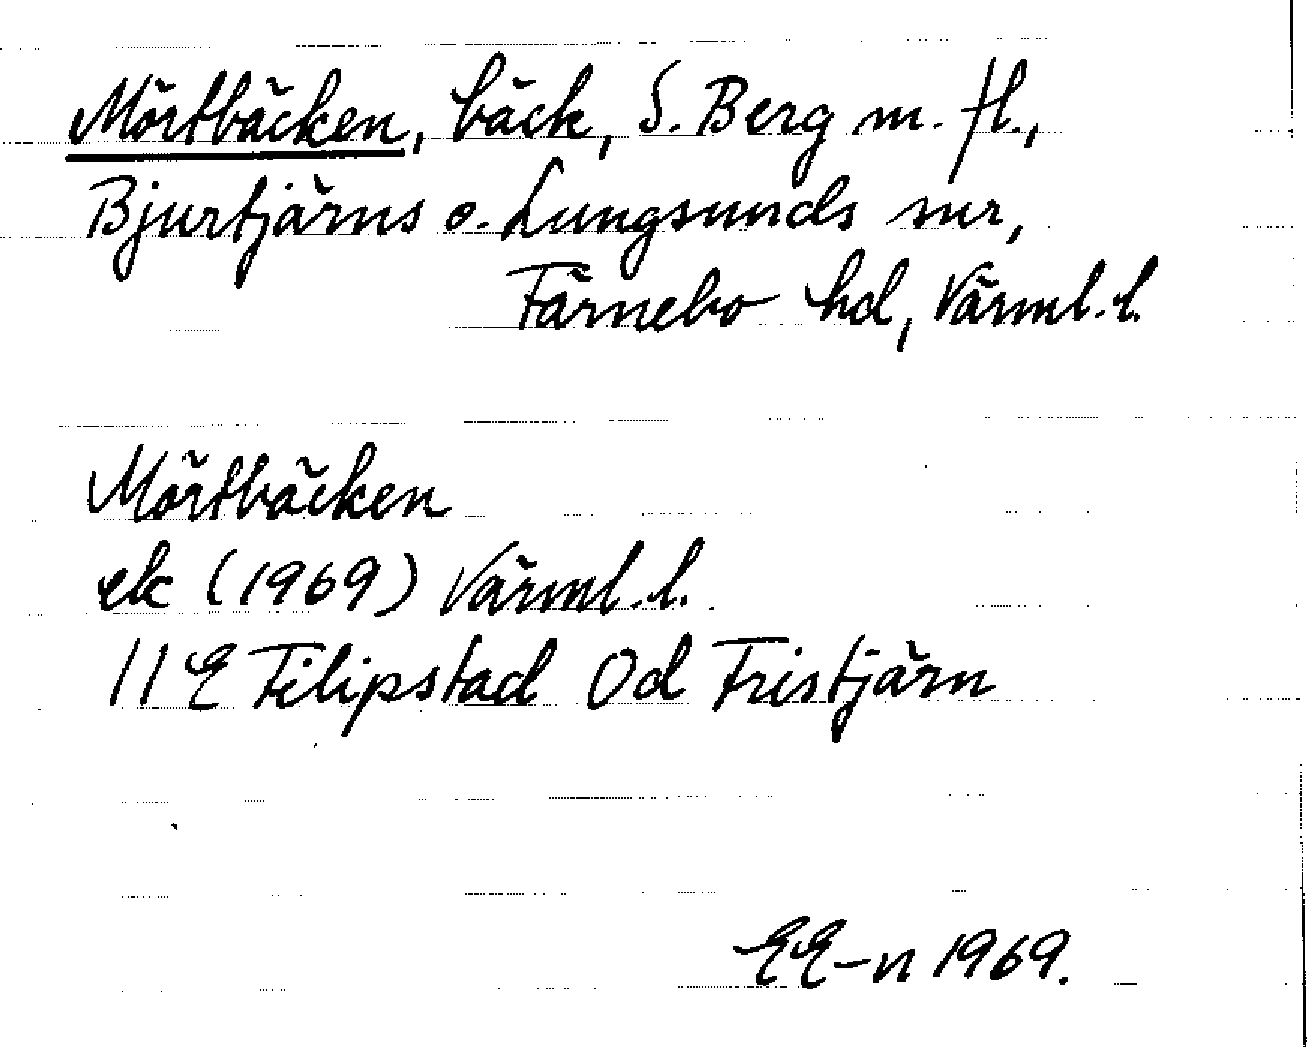 Mörtbäcken, bäck, S. Berg m. fl.,
Bjurtjärns o. Lungsunds snr,
Färnebo hd, Värml. l.
Mörtbäcken
ek (1969) Värml. l.
11 E Filipstad 0d Fristjärn
EE-n 1969.